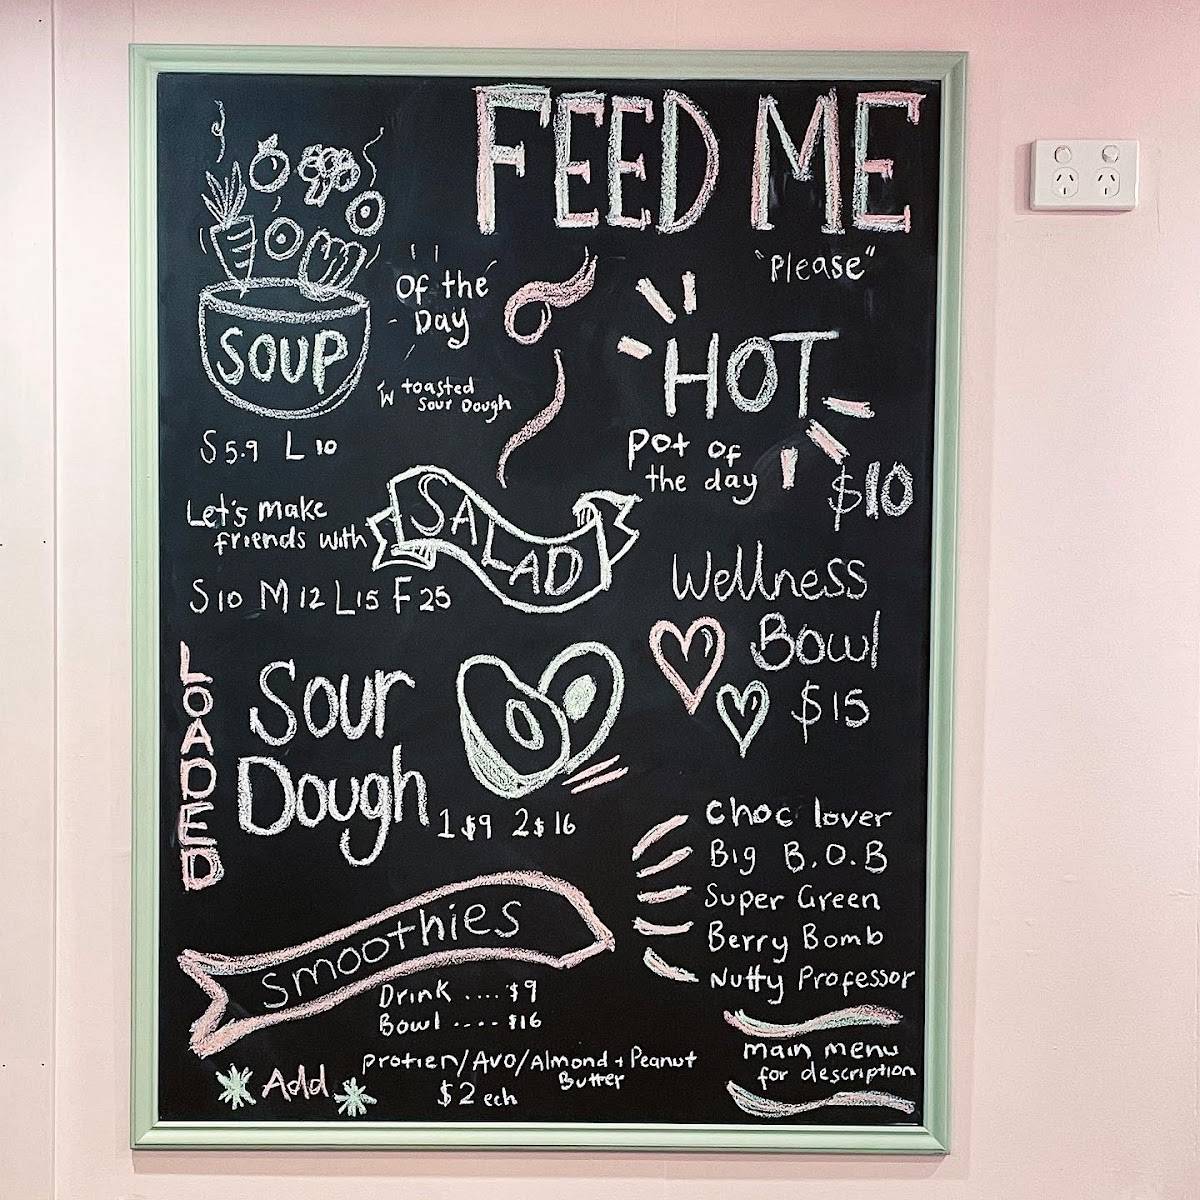 FEED ME
"Please"
SOUP
Of the
Day
W toasted
Sour Dough
S 5.9 L 10
HOT
pot of
the day
$10
Let's make
friends with
SALAD
S 10 M 12 L 15 F 25
Wellness
Bowl
$15
LOADED
Sour
Dough
1 $9 2 $16
Smoothies
Drink .... $9
Bowl .... $16
choc lover
Big B.O.B
Super Green
Berry Bomb
Nutty Professor
Add
protien/Avo/Almond + Peanut
Butter
$2 ech
main menu
for description